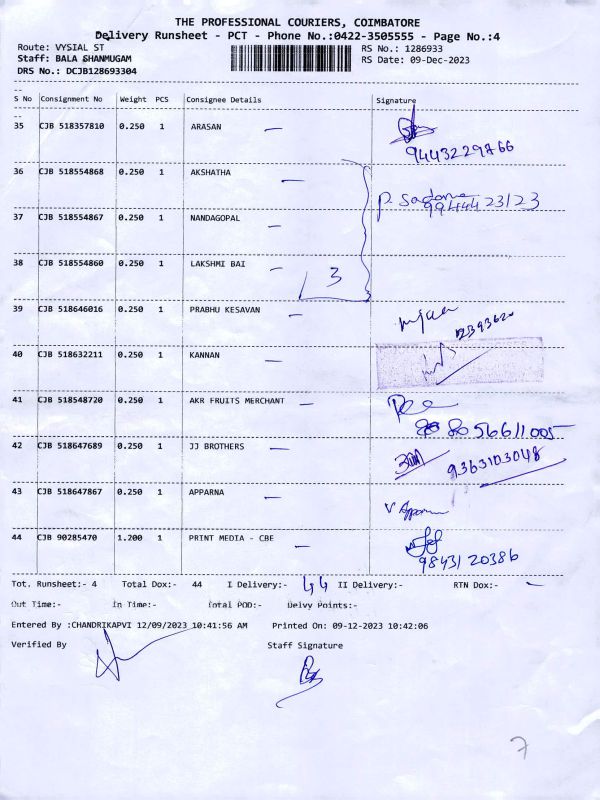 THE PROFESSIONAL COURIERS, COIMBATORE
Delivery Runsheet - PCT - Phone No.:0422-3505555 - Page No.:4
Route: VYSIAL ST RS No.: 1286933
Staff: BALA SHANMUGAM RS Date: 09-Dec-2023
DRS No.: DCJB128693304
S No Consignment No Weight PCS Consignee Details Signature
35 CJB 518357810 0.250 1 ARASAN
9443229766
36 CJB 518554868 0.250 1 AKSHATHA
P. Sadone
9944423123
37 CJB 518554867 0.250 1 NANDAGOPAL
38 CJB 518554860 0.250 1 LAKSHMI BAI 3
39 CJB 518646016 0.250 1 PRABHU KESAVAN
40 CJB 518632211 0.250 1 KANNAN
41 CJB 518548720 0.250 1 AKR FRUITS MERCHANT
8056611005
42 CJB 518647689 0.250 1 JJ BROTHERS
9363103048
43 CJB 518647867 0.250 1 APPARNA
44 CJB 90285470 1.200 1 PRINT MEDIA - CBE
9843120386
Tot. Runsheet:- 4 Total Dox:- 44 I Delivery:- 44 II Delivery:- RTN Dox:- -
Out Time:- In Time:- Total POD:- Delvy Points:-
Entered By :CHANDRIKAPVI 12/09/2023 10:41:56 AM Printed On: 09-12-2023 10:42:06
Verified By Staff Signature
7